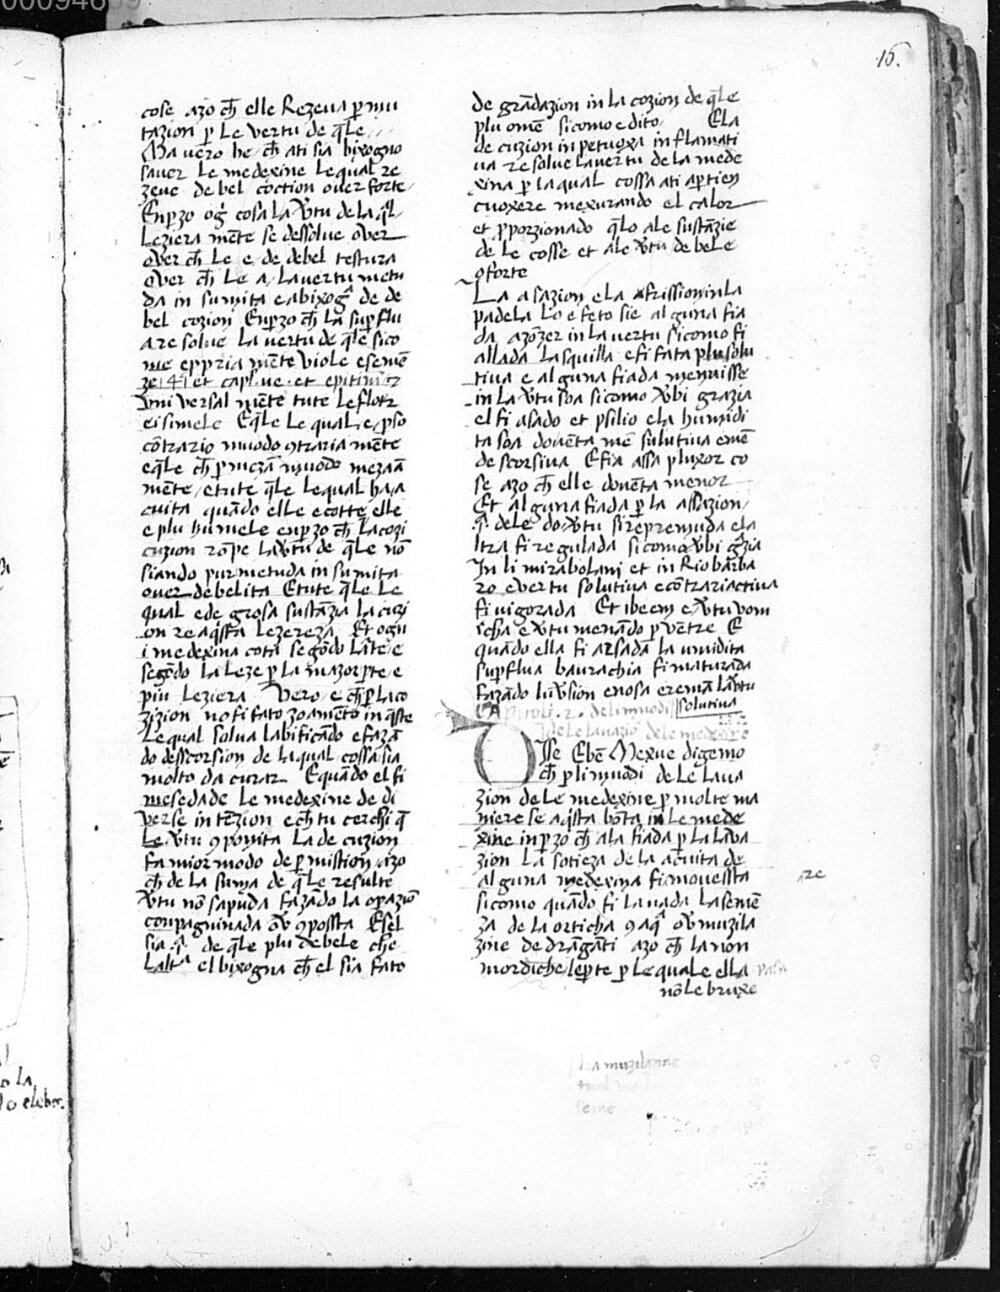 15.
cose azo ch̄ elle Rezeua p̱ mu
tazion p̱ le vertu de q̄le
Ma vero he ch̄ ati sia bixogno
sauer le medexine lequal re
zeue debel coction ouer forte
Enp̱zo og̃ cosa la v̄tu de la q̄l
leziera mēte se dessolue over
over ch̄ le e de debel testura
over ch̄ le a la uertu metu
da in sumita e abixog̃ de de
bel cozion Enp̱zo ch̄ la sup̱flu
a resolue la vertu de q̄le sico
me eppria mēte viole e semē
ze et cap̱l. ue. et epitimi
vniversal mēte tute le flor
ei simele Eq̄le le qual e p̱ so
cōtrario muodo ꝯtraria mēte
e q̄le ch̄ p̱ mezā muodo mezaā
mēte e tute q̄le lequal ha a
cuita quādo elle e cotte elle
e plu humele enp̱zo ch̄ la cozi
cuzion rōpe la v̄tu de q̄le nō
siando pur metuda in sumita
ouer debelita Etute q̄le le
qual e de grosa sustāzia la cuzi
on reaq̄sta lezereza Et ogni
i medexina cota segōdo lāte e
segōdo la leze p̱ la mazor p̱te e
piu leziera Vero e ch̄ p̱ la co
zizion no fi fato zoamēto in q̄ste
lequal solua labificādo e fazā
do desscorsion de laqual cossa sia
molto da curar Equādo el fi
mesedade le medexine de di
verse intēzion e ch̄ tu cerchi q̄
le v̄tu ꝯponita la decuzion
fa mior modo de p̱mistion azo
ch̄ de la suma de q̄le resulte
v̄tu nō sapuda fazādo la op̱azio
conpagninada ov̄ ꝯpossta Esel
sia de q̄le plu debele che
laltra el bixogna ch̄ el sia fato
de grādazion in la cozion de q̄le
plu omē sicomo e dito Ela
decuzion inpetuoxa inflamati
ua resolue lauertu de la mede
xina p̱ laqual cossa ati ap̱tien
cuoxere mexurando el calor
et p̱porzionado q̄lo ale sustāzie
de le cosse et ale v̄tu debele
o forte
La asazion e la frission in la
padela lo efeto sie alguna fia
da azōzer in la vertu sicomo fi
allada la squilla e fi fata plu solu
tiua e alguna fiada menuisse
in la v̄tu soa sicomo v̄bi grazia
el fi asado et psilio ela humidi
ta soa douēta mē solutiua e mē
descorsiua Efia assa pluxor co
se azo ch̄ elle douēta menor
Et alguna fiada p̱ la assazion
dele do v̄tu si reprenuda ela
ltra fi regulada sicomo v̄bi gr̄zia
In li mirabolani et in Riobarba
ro e vertu solutiua e cōtrariactiua
fi vigorada Et ibeem e v̄tu vom
icha e v̄tu menādo p̱ vētre E
quādo ella fi arsada la umidita
sup̱flua baurachia fi maturada
fazādo lūv̄sion enosa e remā la v̄tu
solutiua
Capitoli .2. deli muodi
de la lauazio dele medexine
Disse Ebē Mexue digemo
ch̄ p̱ li muodi dele laua
zion dele medexine p̱ molte ma
niere se aq̄sta bōta in le mede
xine inp̱zo ch̄ ala fiada p̱ la laua
zion la sotieza de la acuita de
alguna medexina fi mouessta
sicomo quādo fi lauada la semē
za de la orticha ꝯ aq̄ ov̄ muzila
zine de dragāti azo ch̄ la non
mordiche le p̱te p̱ lequale ella pasa
nō le bruxe
re
La muzilazine
seme
o la
do elebor.